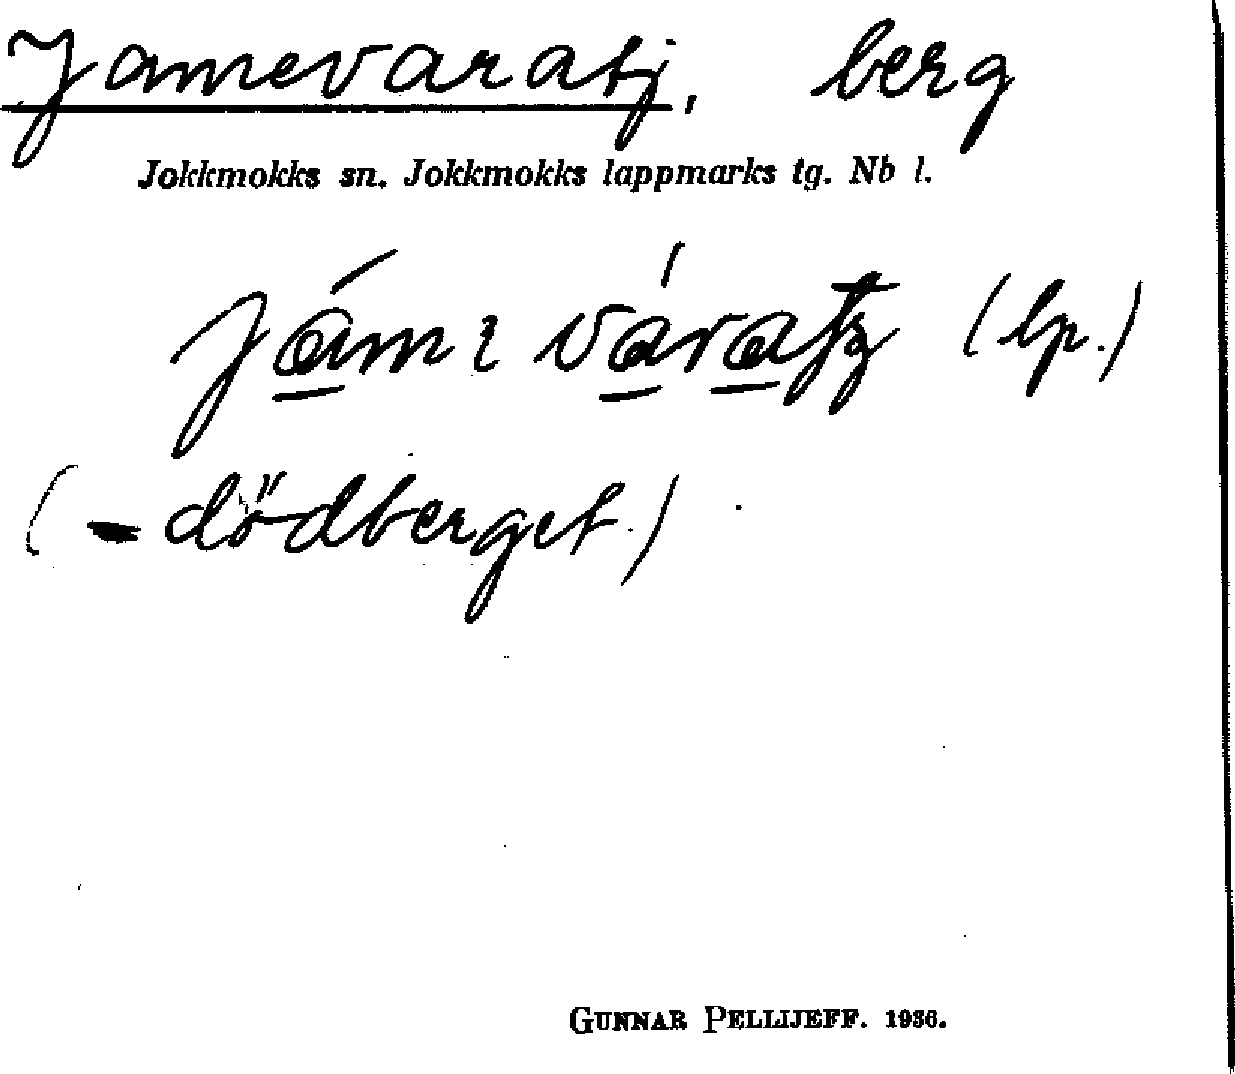 Jamevaratj, berg
Jokkmokks sn. Jokkmokks lappmarks tg. Nb l.
(lp.)
(= dödberget)
GUNNAR PELLIJEFF. 1936.